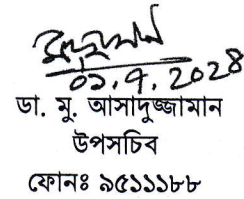 ০১.৭.২০২৪
ডা. মু. আসাদুজ্জামান
উপসচিব
ফোনঃ ৯৫১১১৮৮